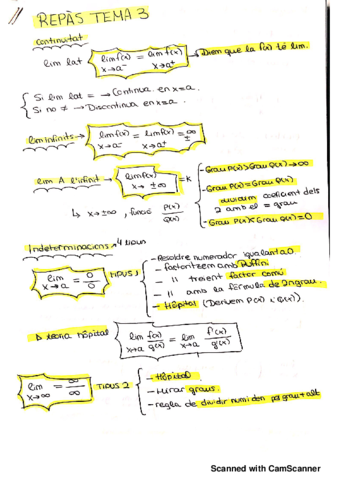 REPÀS TEMA 3
continuïtat
lim lat lim f(x) = lim f(x) → Diem que la f(x) té lím.
x→a⁻ x→a⁺
Si lim lat = → Contínua en x=a.
Si no ≠ → Discontínua en x=a.
lim infinits → lim f(x) = lim f(x) = ∞
x→a⁻ x→a⁺ ±
lim A l'infinit → lim f(x) = K
x→±∞
- Grau P(x) > Grau Q(x) → ∞
- Grau P(x) = Grau Q(x)
dividim coeficient dels
2 amb el = grau
- Grau P(x) < Grau Q(x) = 0
↳ x→±∞, funció P(x)/Q(x)
Indeterminacions
lim x→a = 0/0 TIPUS 1
- Resoldre numerador igualant a 0.
- Factoritzem amb Ruffini
- " traient factor comú
- " amb la fórmula de 2n grau.
- Hôpital (Derivem P(x) i Q(x)).
teoria hôpital lim x→a f(x)/g(x) = lim x→a f'(x)/g'(x)
lim x→∞ = ∞/∞ TIPUS 2
- Hôpital
- Mirar graus.
- regla de dividir num i den pel grau + alt
Scanned with CamScanner